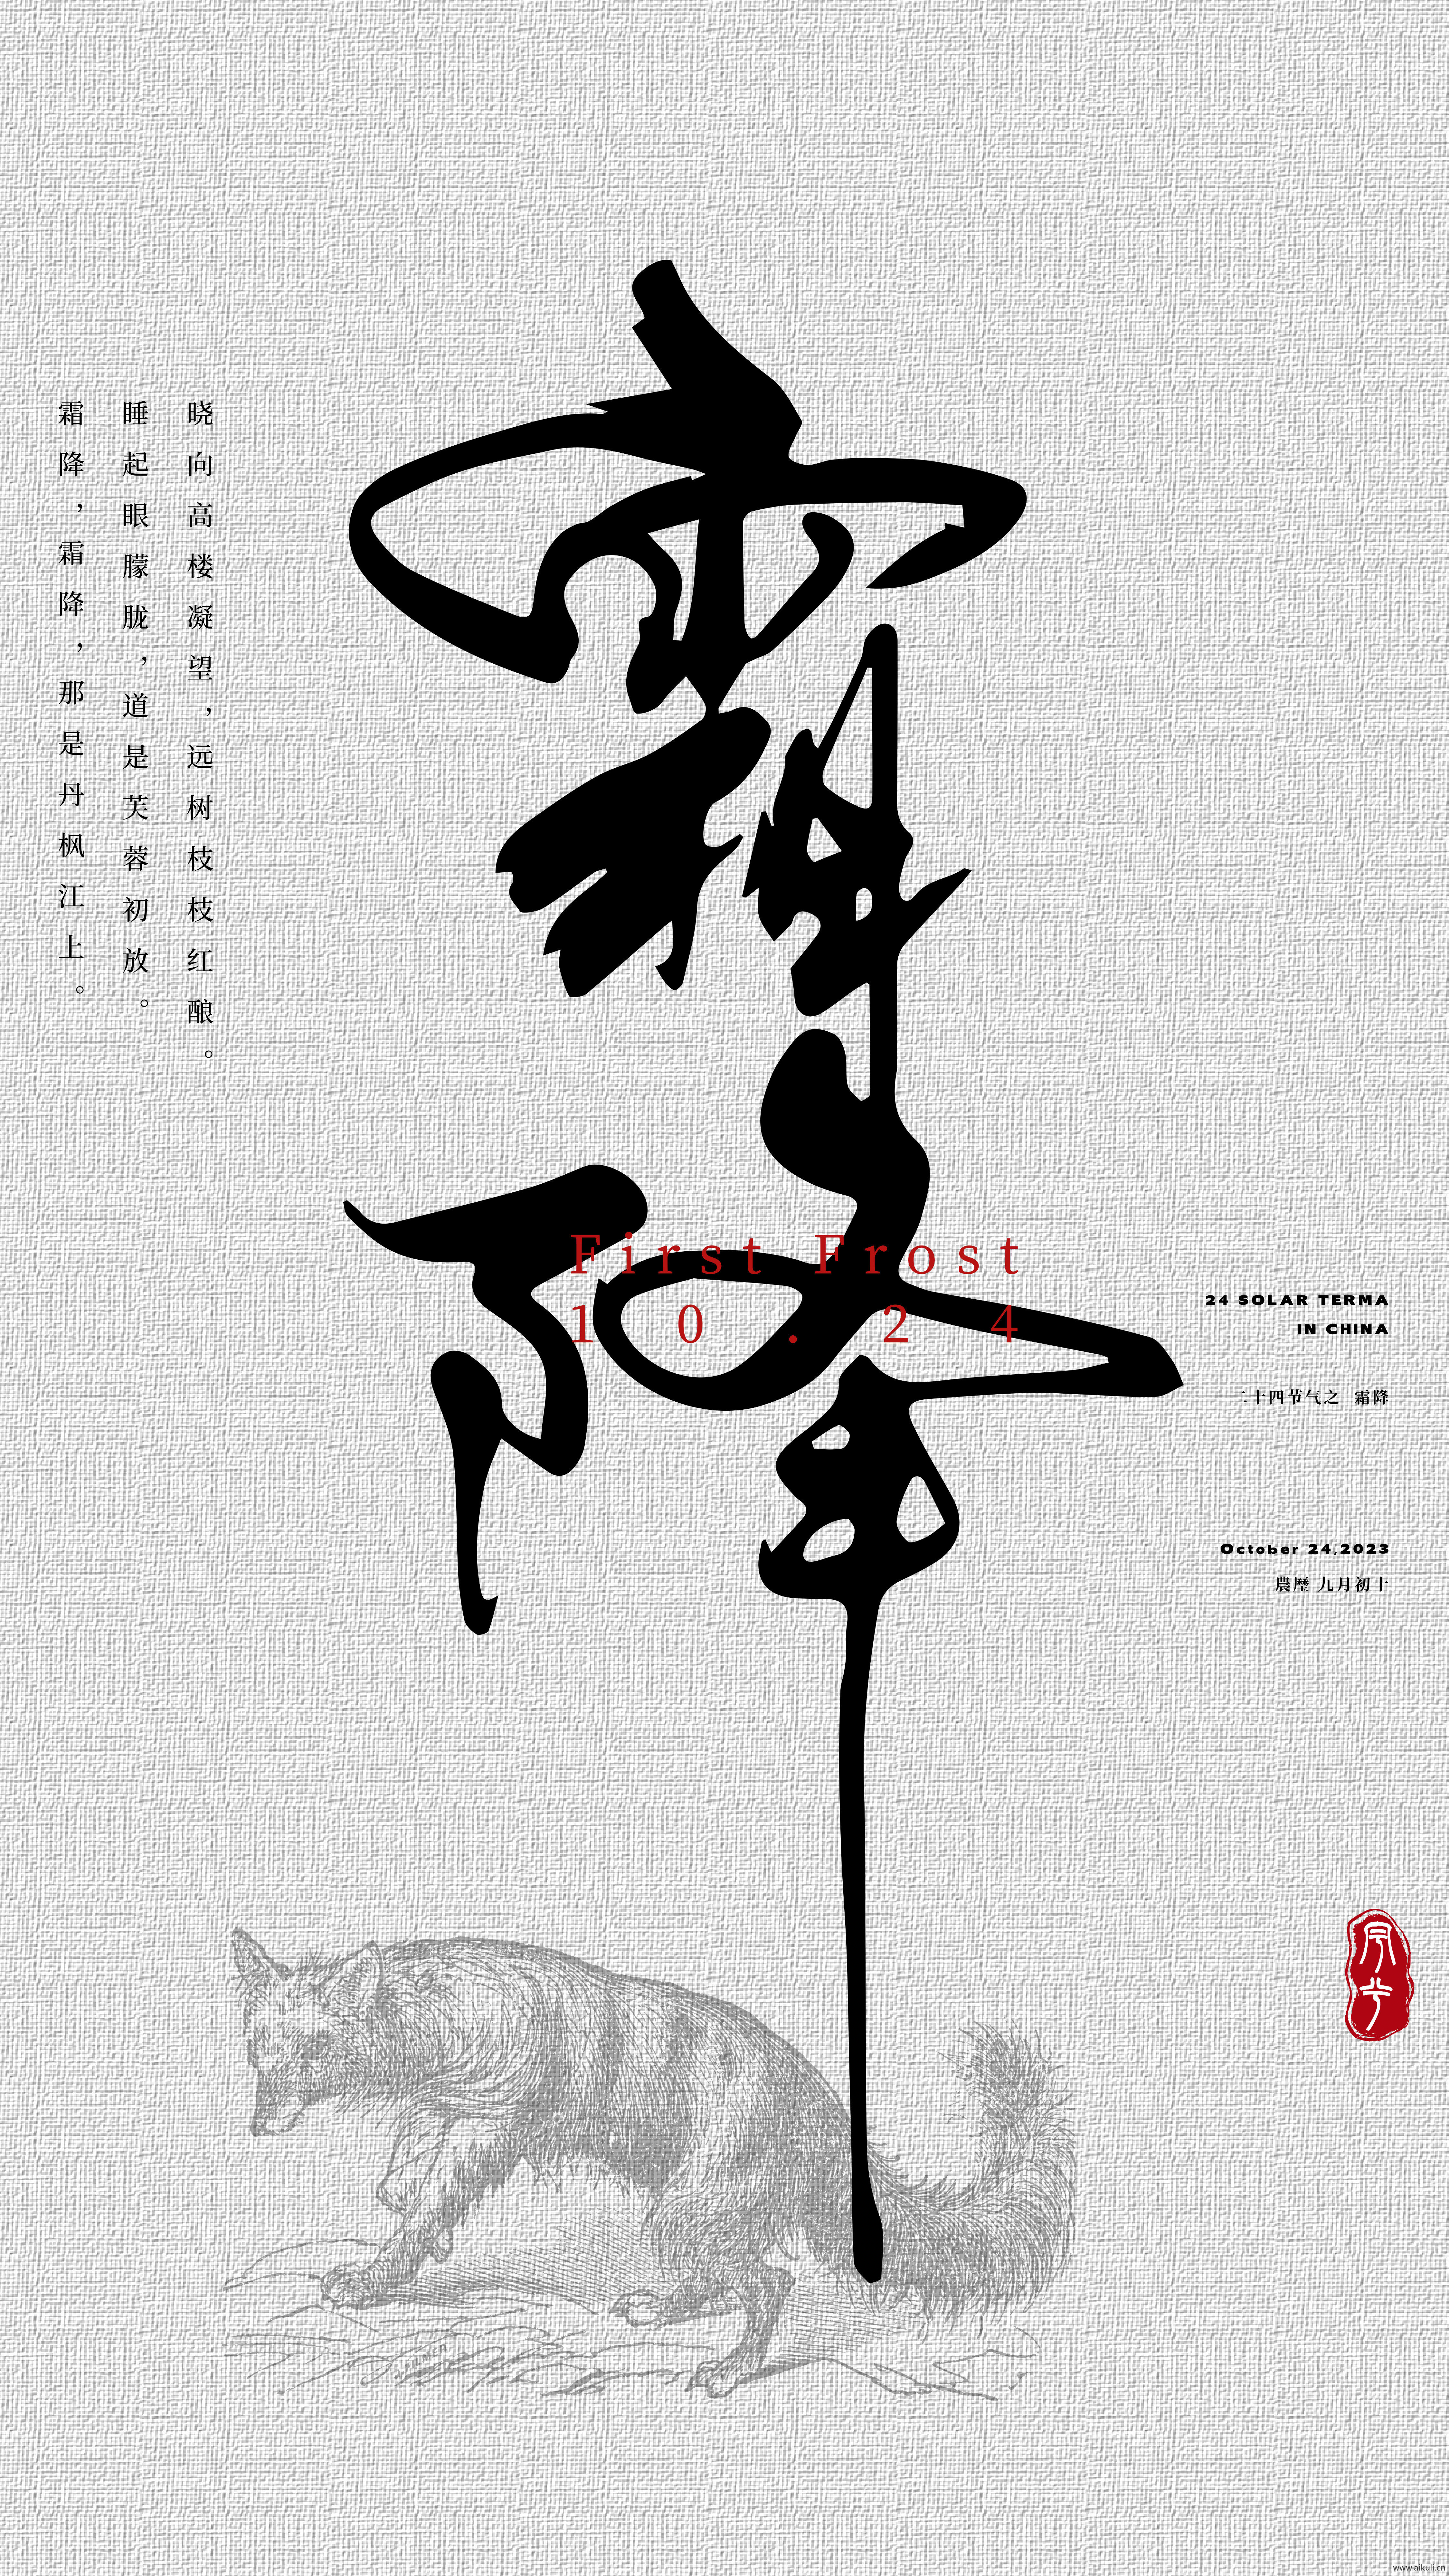 霜降
晓向高楼凝望，远树枝枝红酿。
睡起眼朦胧，道是芙蓉初放。
霜降，霜降，那是丹枫江上。
First Frost
10.24
24 SOLAR TERMA
IN CHINA
二十四节气之 霜降
October 24,2023
農歷 九月初十
www.aikuli.cn